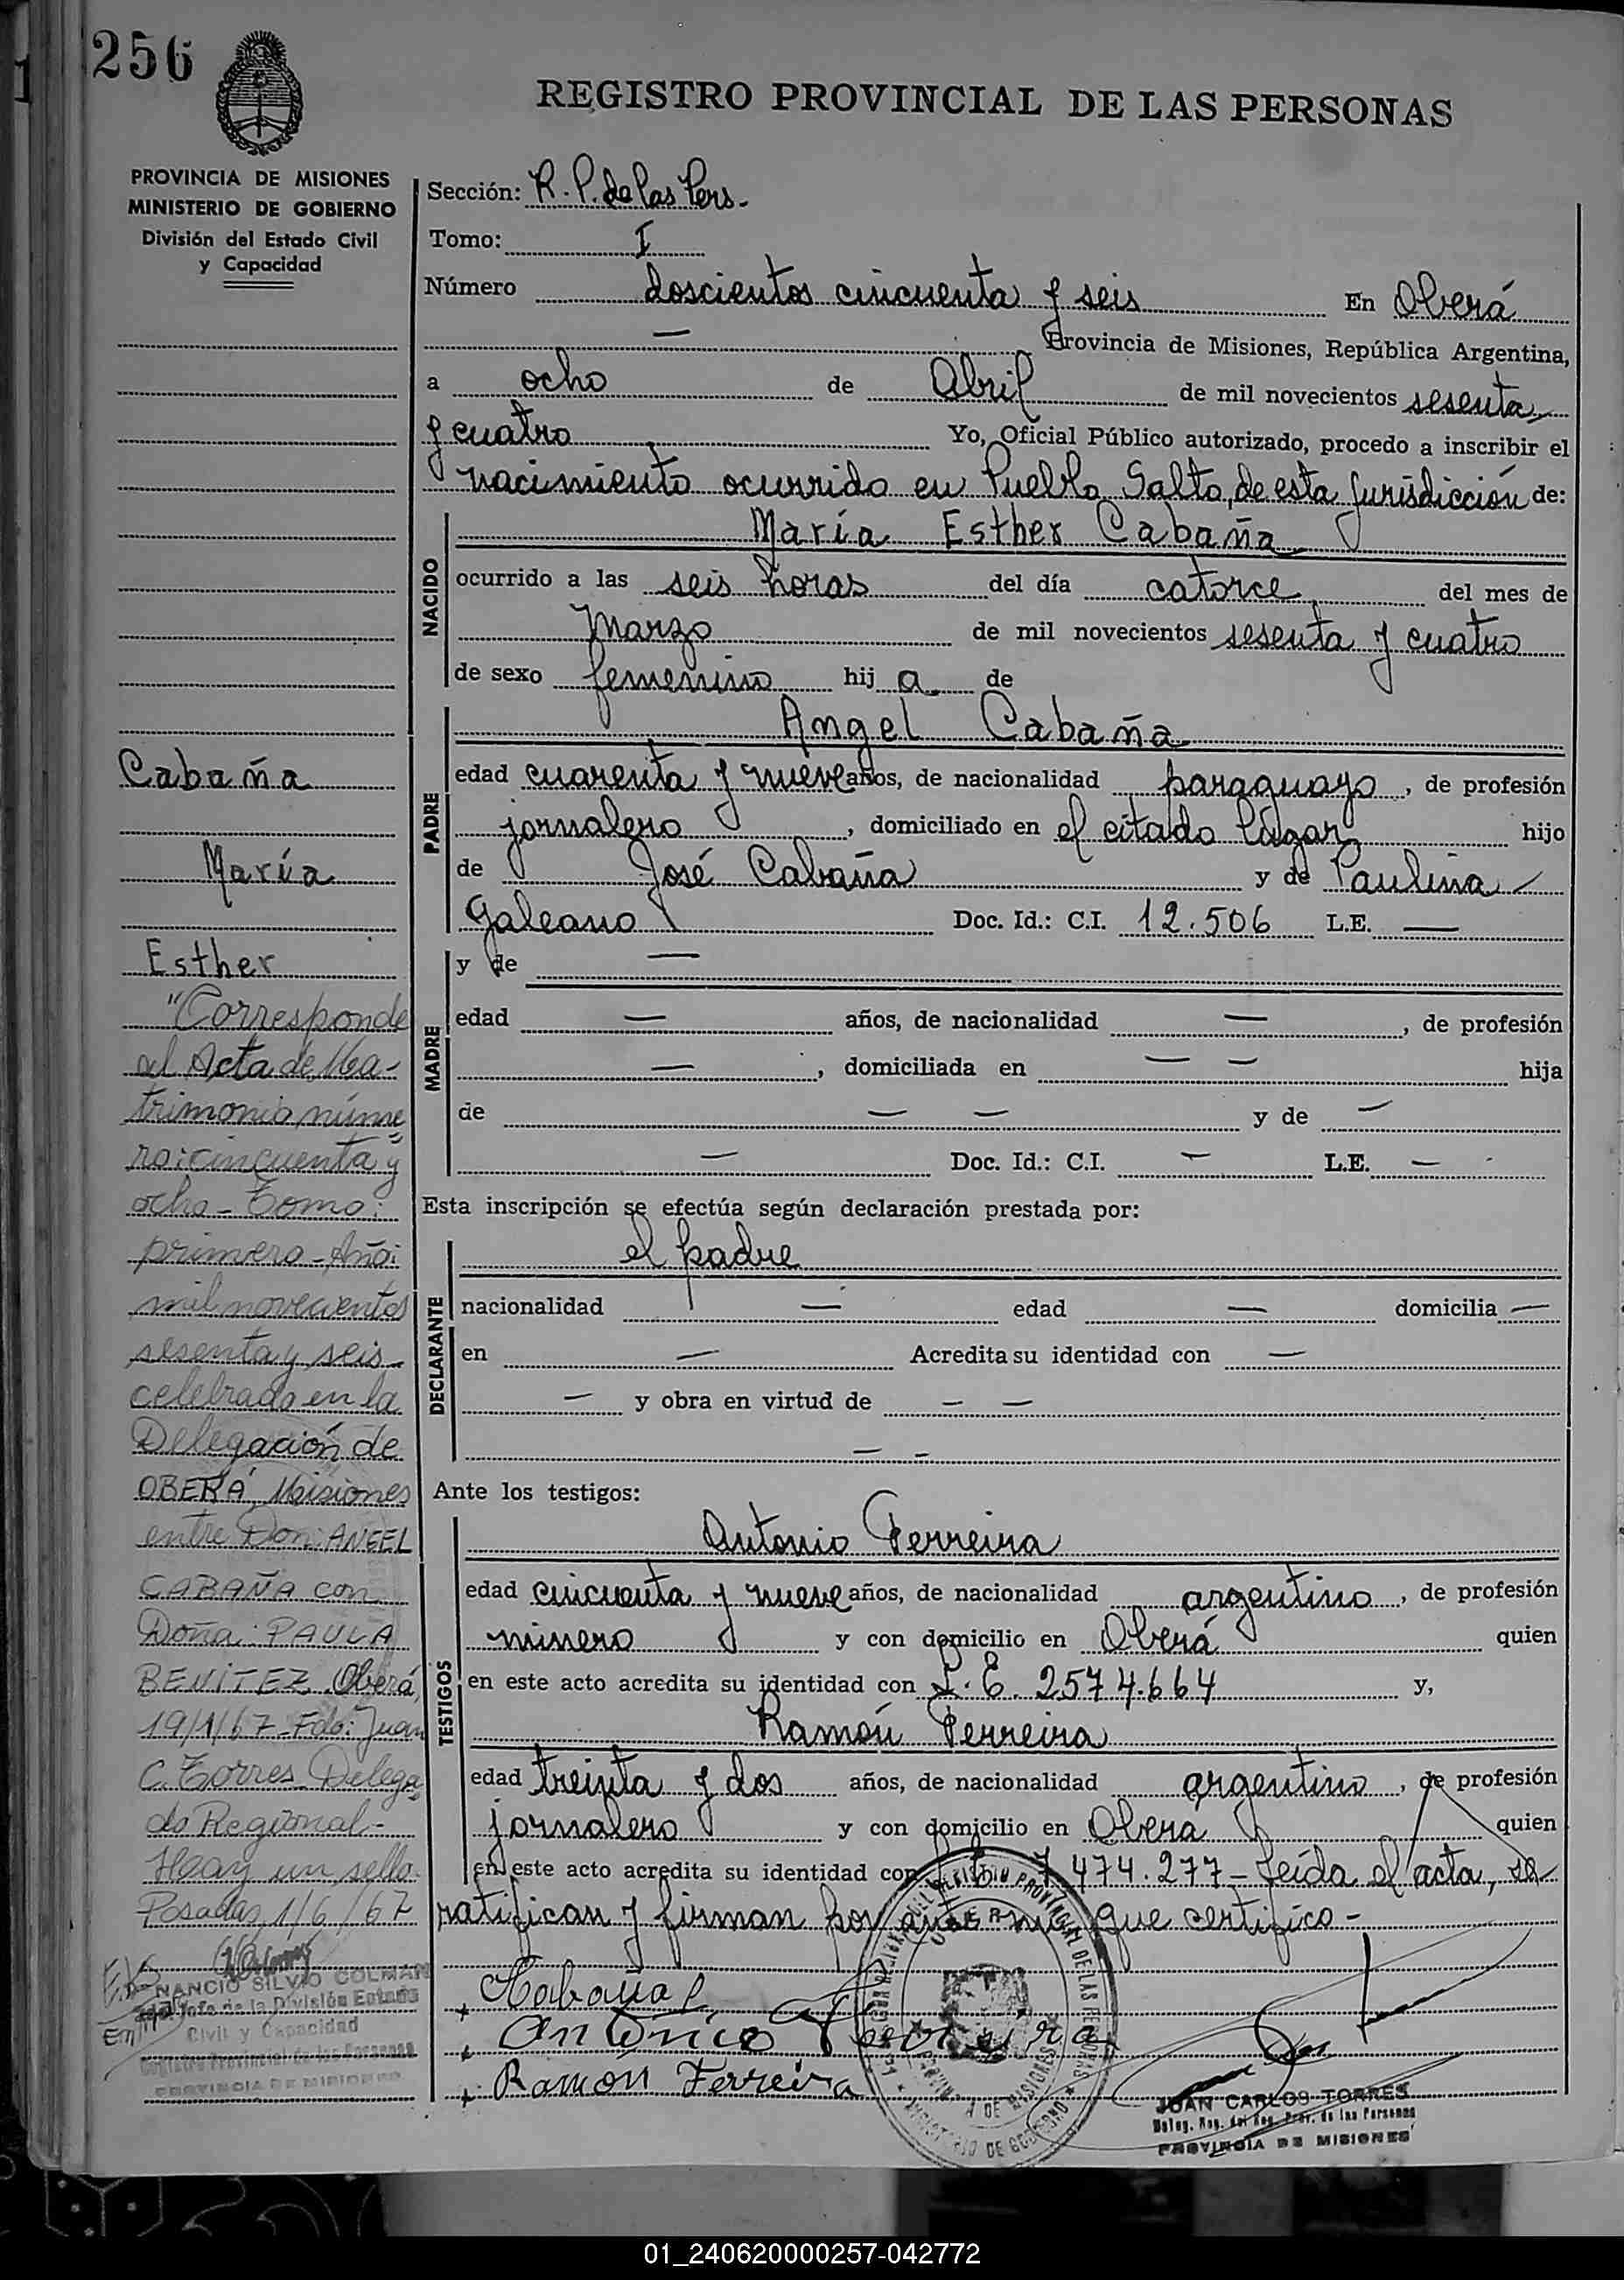 256
REGISTRO PROVINCIAL DE LAS PERSONAS
PROVINCIA DE MISIONES
MINISTERIO DE GOBIERNO
División del Estado Civil
y Capacidad
Sección: R. P. de las Pers.
Tomo: I
Número doscientos cincuenta y seis En Oberá
— Provincia de Misiones, República Argentina,
a ocho de Abril de mil novecientos sesenta
y cuatro Yo, Oficial Público autorizado, procedo a inscribir el
nacimiento ocurrido en Pueblo Salto, de esta jurisdicción de:
NACIDO
María Esther Cabaña
ocurrido a las seis horas del día catorce del mes de
Marzo de mil novecientos sesenta y cuatro
de sexo femenino hij a de
PADRE
Angel Cabaña
edad cuarenta y nueve años, de nacionalidad paraguayo, de profesión
jornalero, domiciliado en el citado lugar hijo
de José Cabaña y de Paulina
Galeano Doc. Id.: C.I. 12.506 L.E. —
MADRE
y de —
edad — años, de nacionalidad —, de profesión
—, domiciliada en — — hija
de — — y de —
— Doc. Id.: C.I. — L.E. —
Esta inscripción se efectúa según declaración prestada por:
DECLARANTE
el padre
nacionalidad — edad — domicilia —
en — Acredita su identidad con —
— y obra en virtud de — —
— -
Ante los testigos:
TESTIGOS
Antonio Ferreira
edad cincuenta y nueve años, de nacionalidad argentino, de profesión
minero y con domicilio en Oberá quien
en este acto acredita su identidad con L. E. 2574.664 y,
Ramón Ferreira
edad treinta y dos años, de nacionalidad argentino, de profesión
jornalero y con domicilio en Oberá quien
en este acto acredita su identidad con 7 474.277 - Leída el acta, se
ratifican y firman por ante mi que certifico -
Cabaña
Antonio Ferreira
Ramón Ferreira
JUAN CARLOS TORRES
Deleg. Reg. del Reg. Prov. de las Personas
PROVINCIA DE MISIONES
Cabaña
María
Esther
"Corresponde
al Acta de Ma-
trimonio núme
ro: cincuenta y
ocho - Tomo:
primero - Año:
mil novecientos
sesenta y seis
celebrado en la
Delegación de
OBERÁ, Misiones
entre Don: ANGEL
CABAÑA con
Doña: PAULA
BENITEZ. Oberá,
19/1/67 - Fdo: Juan
C. Torres Delega
do Regional -
Hay un sello.
Posadas, 1/6/67
VENANCIO SILVIO COLMAN
Jefe de la División Estado
Civil y Capacidad
Registro Provincial de las Personas
PROVINCIA DE MISIONES
01_240620000257-042772